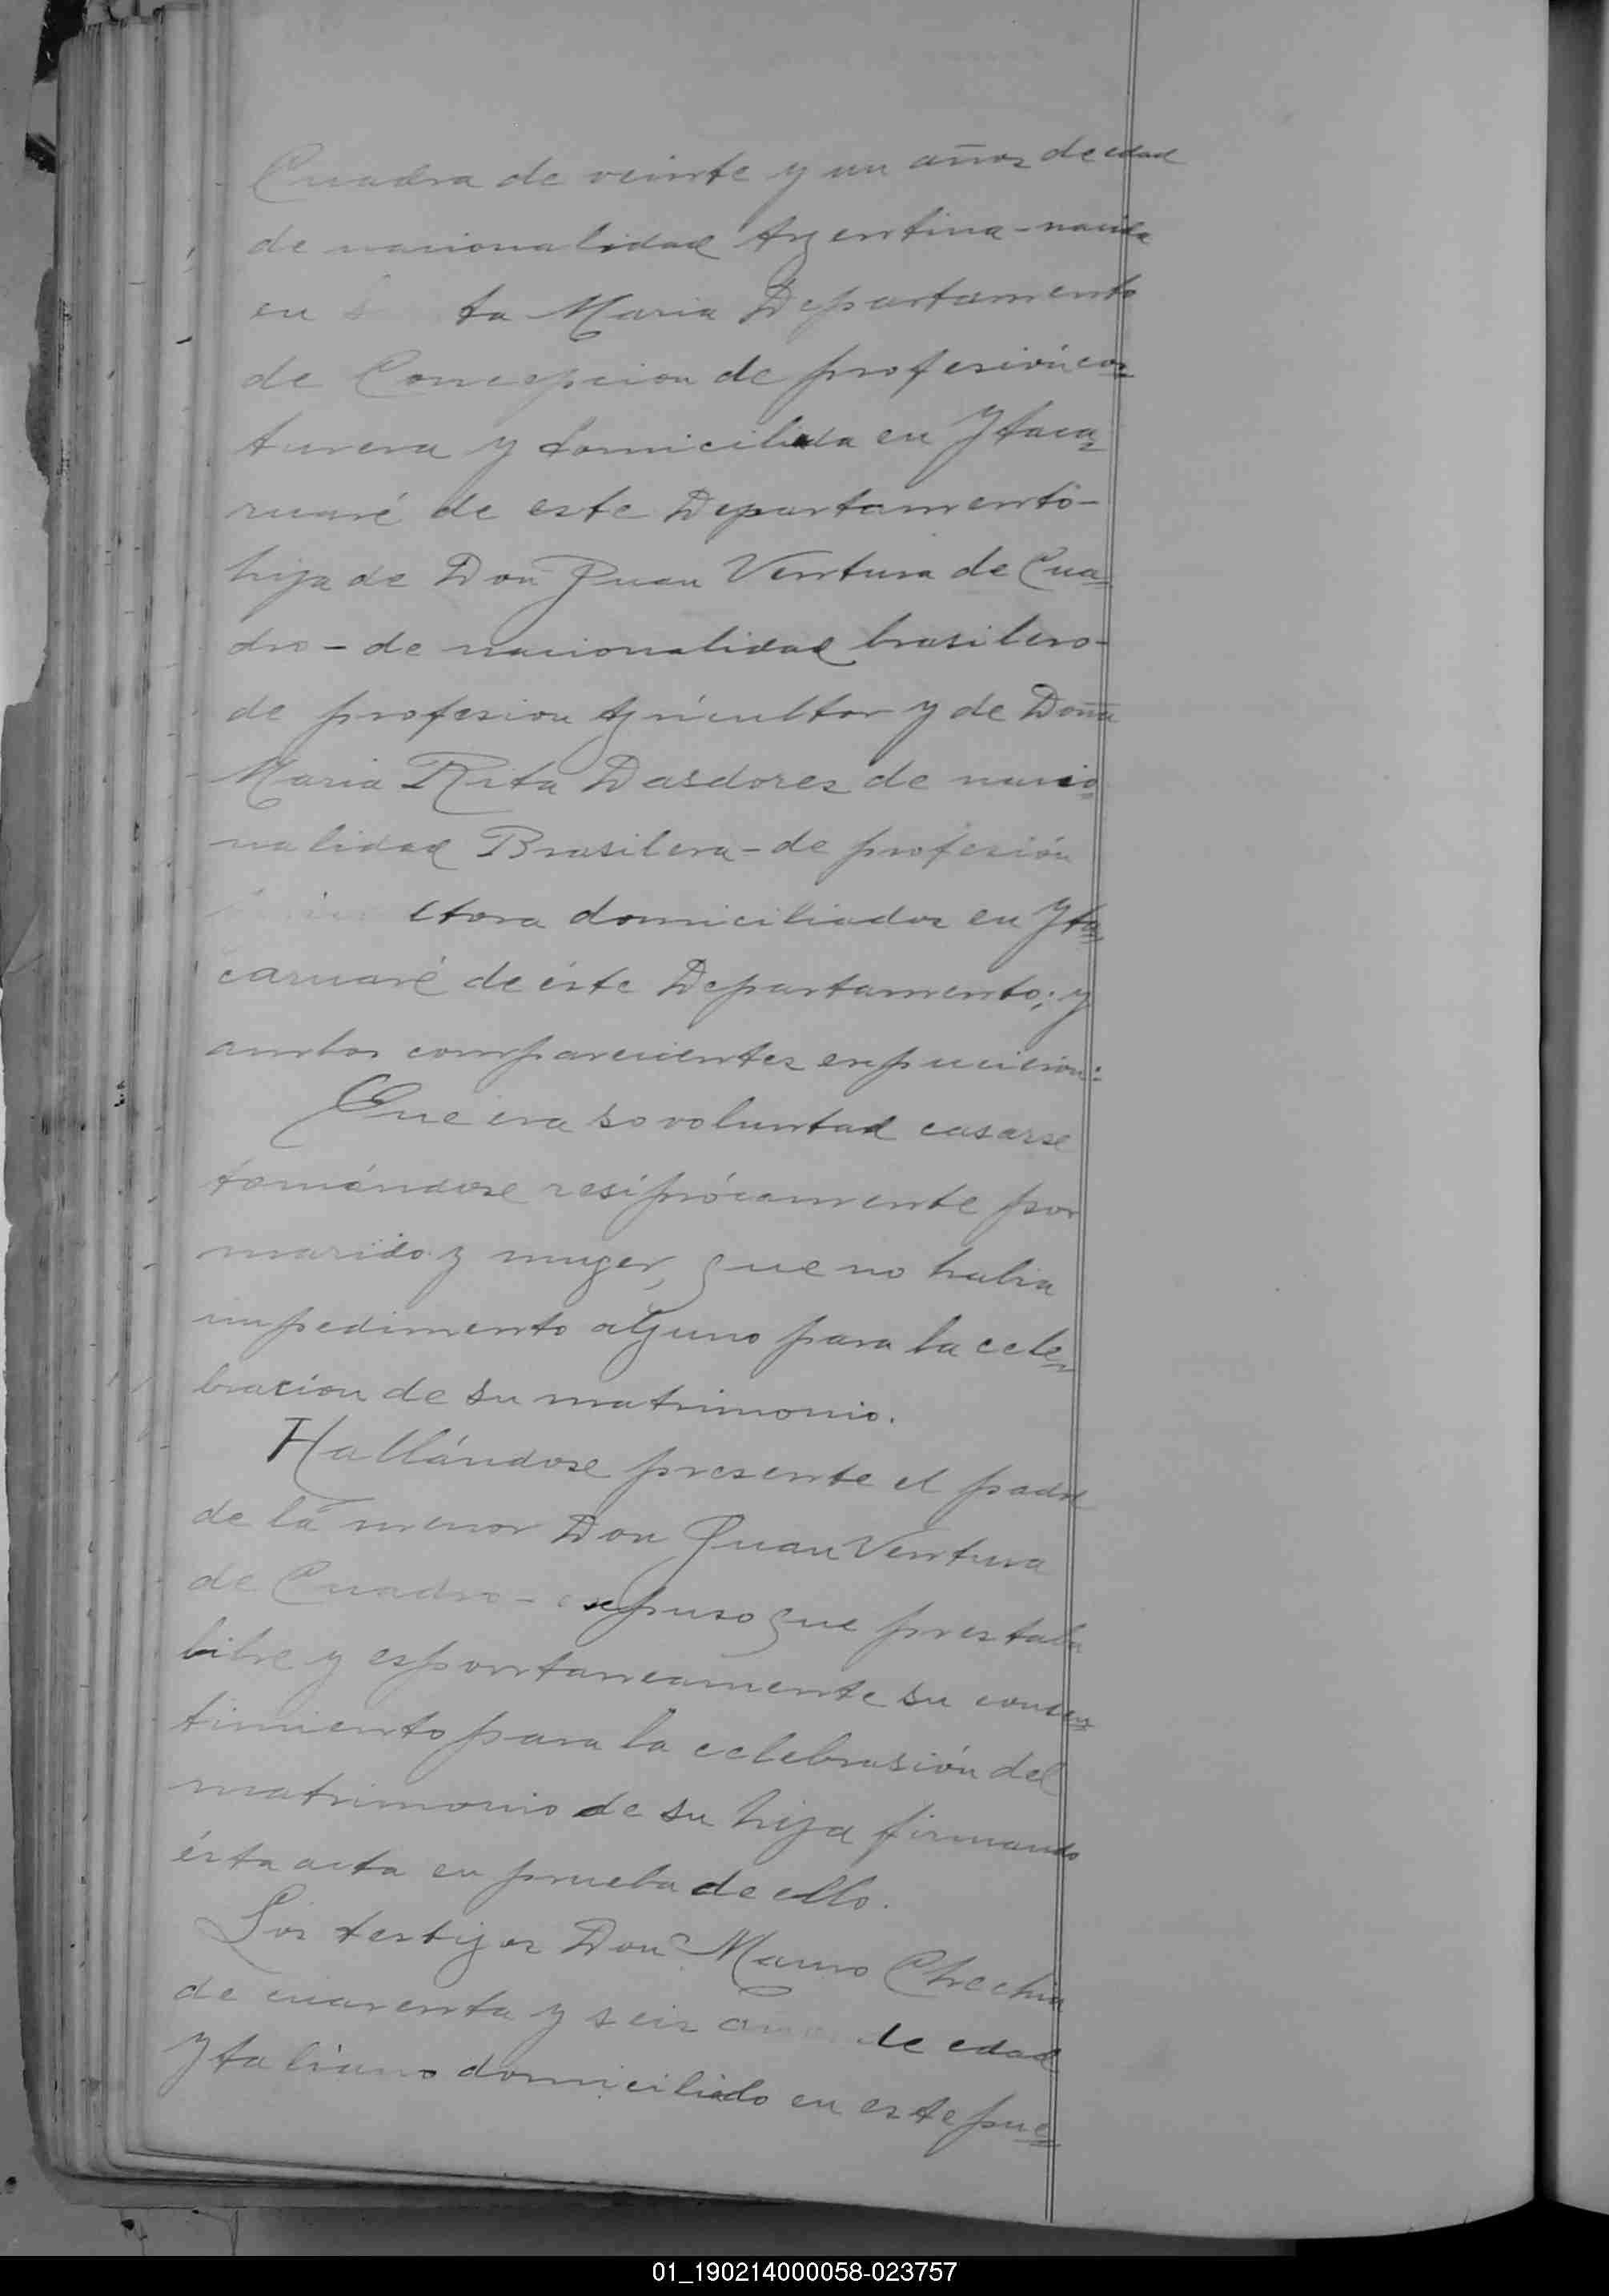 Cuadra de veinte y un años de edad
de nacionalidad Argentina - nacida
en ta Maria Departamento
de Concepcion de profesión cos=
turera y domiciliada en Ytaca=
ruaré de este Departamento -
hija de Don Juan Ventura de Cua=
dro - de nacionalidad brasilero -
de profesion Agricultor y de Doña
Maria Rita Dasdores de nacio=
nalidad Brasilera - de profesión
ctora domiciliados en Yta=
caruaré de éste Departamento; y
ambos comparecientes expucieron:
Que era so voluntad casarse
tomándose resiprócamente por
marido y muger, que no habia
impedimento alguno para la cele=
bracion de su matrimonio.
Hallándose presente el padre
de la menor Don Juan Ventura
de Cuadro - expuso que prestaba
libre y espontaneamente su consen=
timiento para la celebrasión del
matrimonio de su hija firmando
ésta acta en prueba de ello.
Los testigos Don Mauro Chechin
de cuarenta y seis años de edad
Ytaliano domiciliado en este pue=
01_190214000058-023757